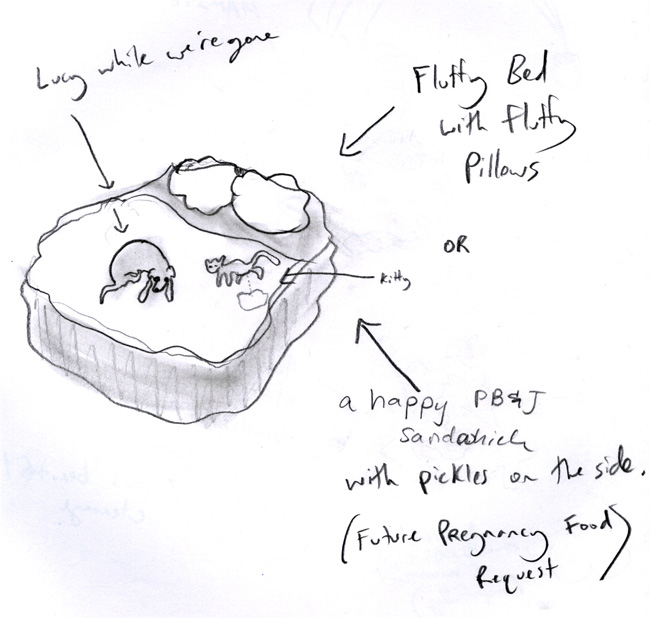 Lucy while we're gone
Fluffy Bed
with Fluffy
Pillows
OR
Kitty
a happy PB&J
Sandwhich
with pickles on the side.
(Future Pregnancy Food
Request)